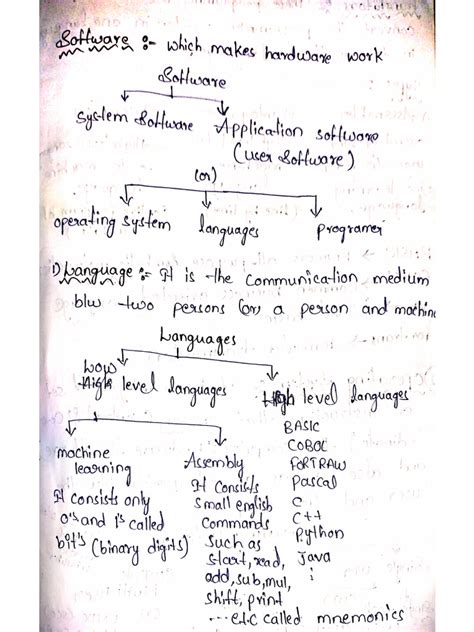 Software :- which makes hardware work
Software
System Software Application software
(user Software)
(or)
operating system languages programer
1) Language :- It is the communication medium
b/w two persons (or) a person and machine
Languages
Low level languages
High level languages
machine
learning
It consists only
0's and 1's called
bit's (binary digits)
Assembly
It consists
small english
commands
such as
start, read,
add, sub, mul,
shift, print
...etc called mnemonics
BASIC
COBOL
FORTRAW
Pascal
C
C++
Python
Java